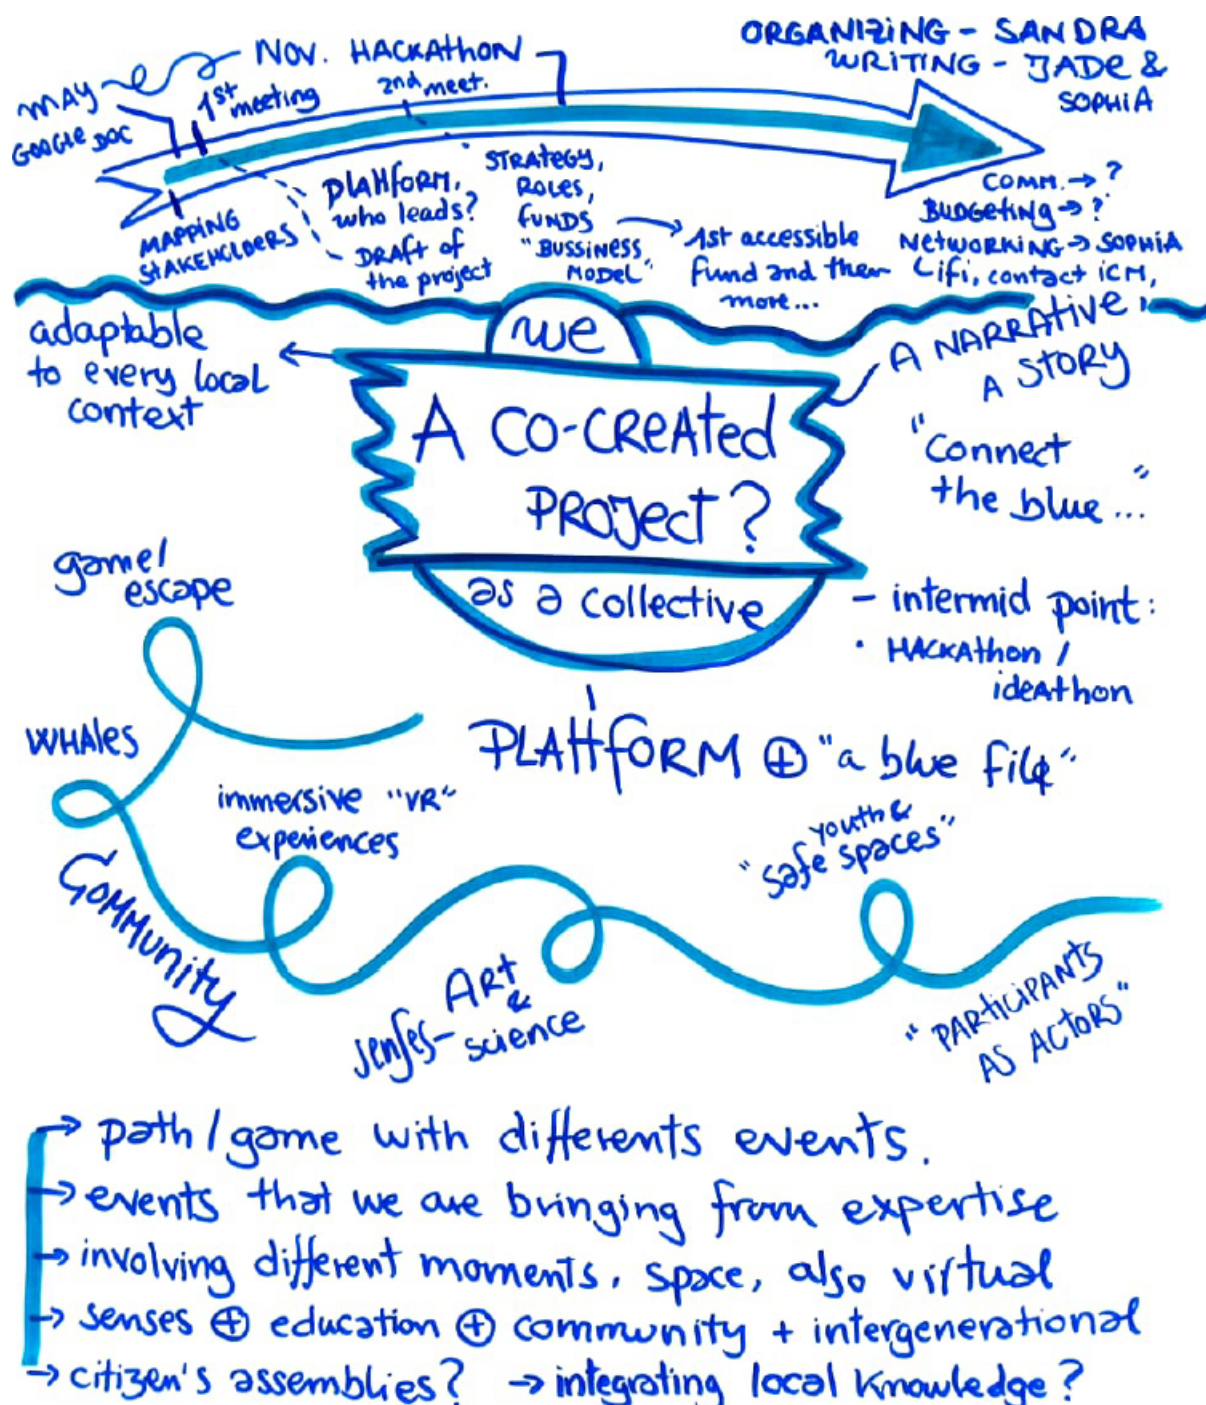 NOV. HACKAthON
ORGANIZING - SANDRA
WRITING - JADE &
SOPHIA
MAY
GOOGLE DOC
1st meeting
2nd meet.
MAPPING
STAKEHOLDERS
PLAttfORM,
who leads?
DRAft of
the project
STRATEGY,
ROLES,
fUNDS
"BUSSINESS
MODEL"
1st accessible
fund and then
more...
COMM. → ?
BUDGEtiNG → ?
NEtWORKiNG → SOPHiA
Lifi, contact iCM,
we
adaptable
to every local
context
A CO-CREAted
PROJect?
as a collective
A NARRAtive,
A StORY
"Connect
the blue..."
- intermid point:
• HACKAthon /
ideAthon
game/
escape
WHAles
PLAttfORM ⊕ "a blue file"
immersive "VR"
experiences
youth &
"safe spaces"
Community
senses - ARt
& science
"PARticiPANTS
AS ACtORS"
→ path/game with differents events.
→ events that we are bringing from expertise
→ involving different moments, space, also virtual
→ senses ⊕ education ⊕ community + intergenerational
→ citizen's assemblies? → integrating local knowledge?